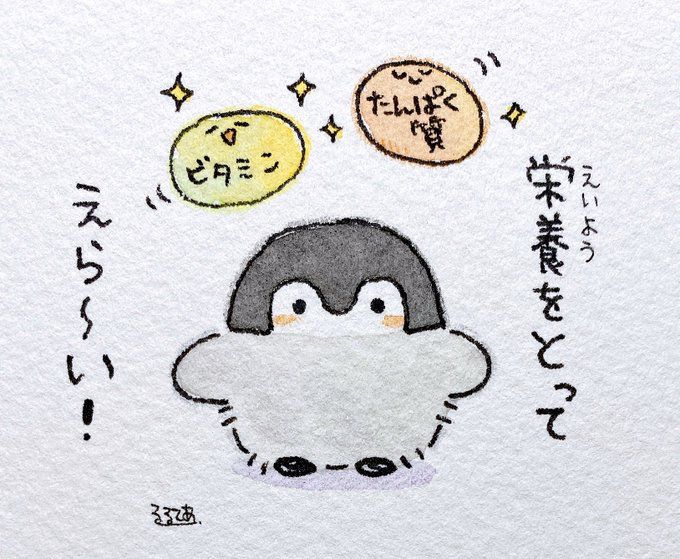 えいよう
栄養をとって
えら〜い!
ビタミン
たんぱく
質
るるてあ.